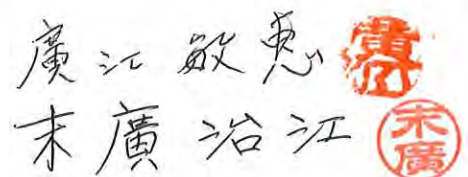 廣江敏恵
末廣冶江 末廣